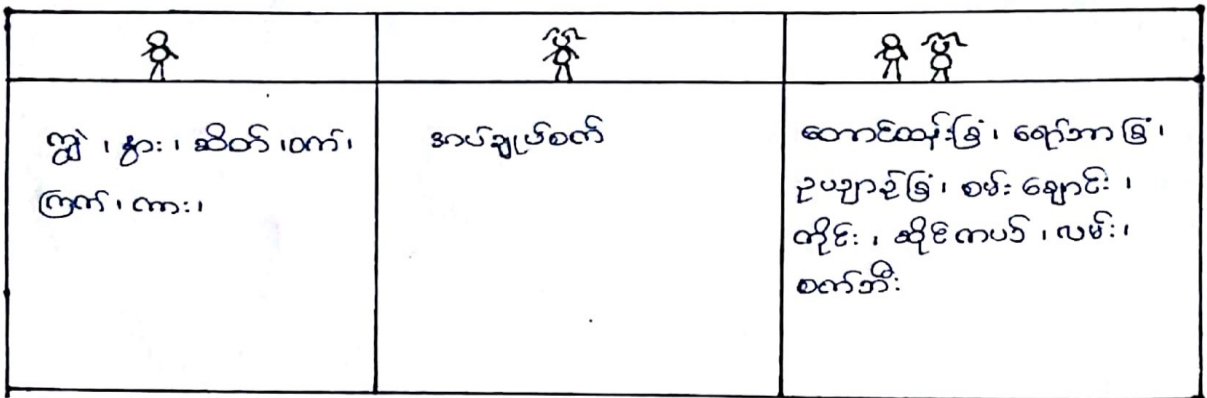 ကျွဲ ၊ နွား ၊ ဆိတ် ၊ ဝက် ၊
ကြက် ၊ ကား ၊
အပ်ချုပ်စက်
တောင်ထန်းခြံ ၊ ရော်ဘာခြံ ၊
ဥယျာဉ်ခြံ ၊ စမ်းချောင်း ၊
ကိုင်း ၊ ဆိုင်ကယ် ၊ လမ်း ၊
စက်ဘီး